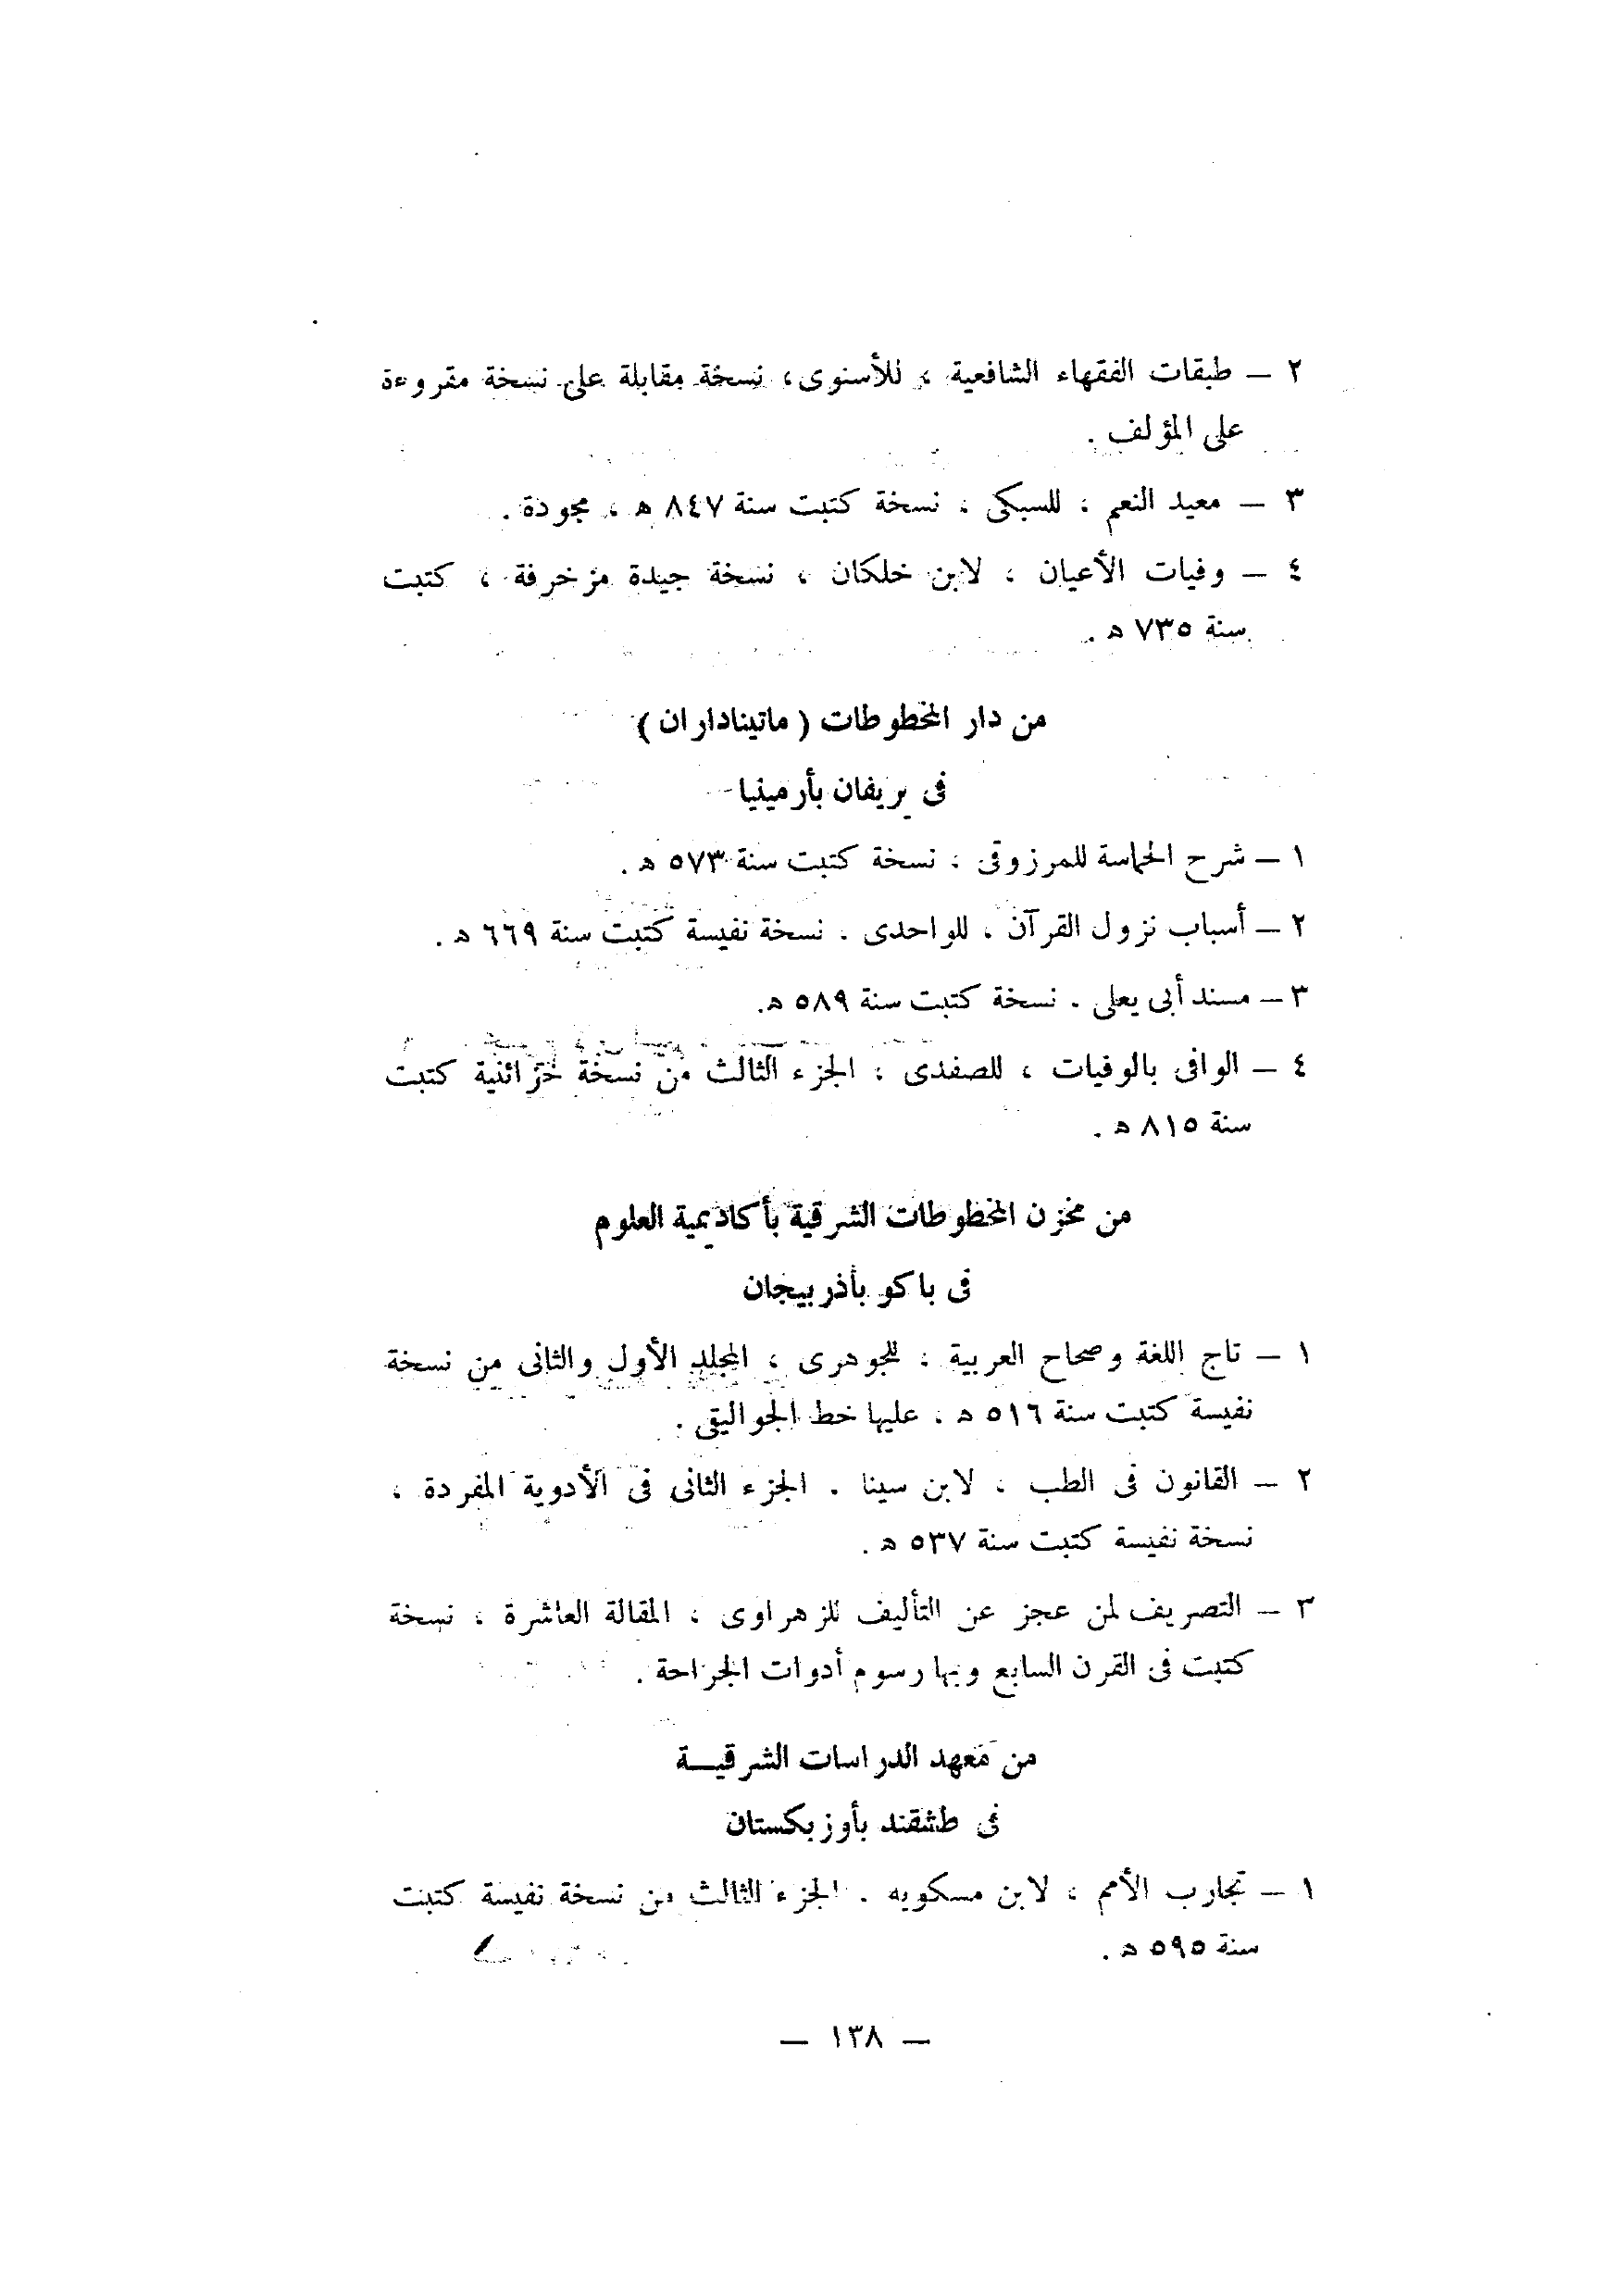 ٢ — طبقات الفقهاء الشافعية ، للأسنوى ، نسخة مقابلة على نسخة مقروءة
على المؤلف .
٣ — معيد النعم ، للسبكى ، نسخة كتبت سنة ٨٤٧ ه ، مجودة .
٤ — وفيات الأعيان ، لابن خلكان ، نسخة جيدة مزخرفة ، كتبت
سنة ٧٣٥ ه .
من دار المخطوطات ( ماتيناداران )
فى يريفان بأرمينيا
١ — شرح الحماسة للمرزوقى ، نسخة كتبت سنة ٥٧٣ ه .
٢ — أسباب نزول القرآن ، للواحدى . نسخة نفيسة كتبت سنة ٦٦٩ ه .
٣ — مسند أبى يعلى . نسخة كتبت سنة ٥٨٩ ه.
٤ — الوافى بالوفيات ، للصفدى ، الجزء الثالث من نسخة خزائنية كتبت
سنة ٨١٥ ه .
من مخزن المخطوطات الشرقية بأكاديمية العلوم
فى باكو بأذربيجان
١ — تاج اللغة وصحاح العربية ، للجوهرى ، المجلد الأول والثانى من نسخة
نفيسة كتبت سنة ٥١٦ ه ، عليها خط الجواليقى .
٢ — القانون فى الطب ، لابن سينا . الجزء الثانى فى الأدوية المفردة ،
نسخة نفيسة كتبت سنة ٥٣٧ ه .
٣ — التصريف لمن عجز عن التأليف للزهراوى ، المقالة العاشرة ، نسخة
كتبت فى القرن السابع وبها رسوم أدوات الجراحة .
من معهد الدراسات الشرقيـــة
فى طشقند بأوزبكستان
١ — تجارب الأمم ، لابن مسكويه . الجزء الثالث من نسخة نفيسة كتبت
سنة ٥٩٥ ه .
— ١٣٨ —